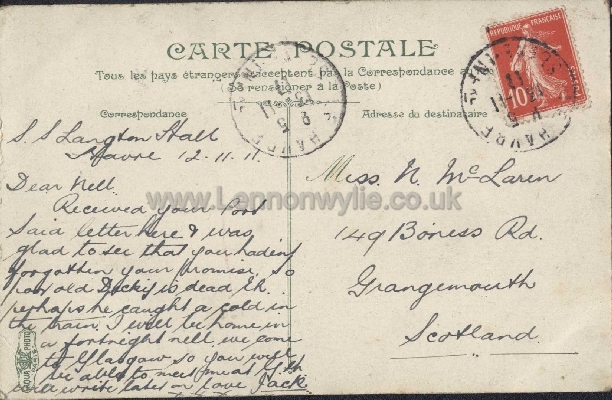 CARTE POSTALE
Tous les pays étrangers n'acceptent pas la Correspondance au
(Se renseigner à la Poste)
Correspondance
Adresse du destinataire
REPUBLIQUE FRANÇAISE
10
HAVRE
S.S Langton Hall
Havre 12.11.11.
Dear Nell.
Received your Port
Said letter here & was
glad to see that you hadent
forgotten your promise. So
poor old Dicky is dead Eh.
perhaps he caught a cold in
the train. I will be home in
a fortnight nell, we come
to Glasgow so you will
be able to meet me at
will write later on love Jack
Miss. N. McLaren
149 Boness Rd.
Grangemouth
Scotland.
www.Lennonwylie.co.uk